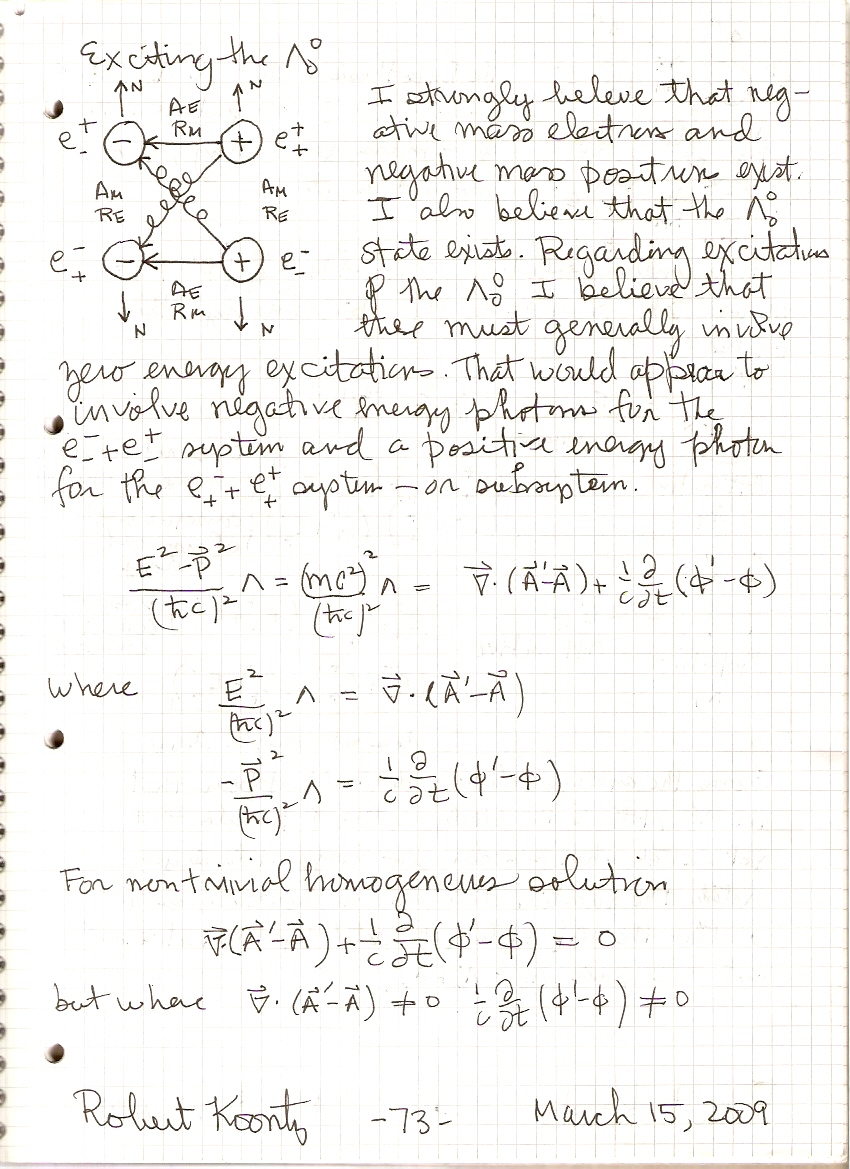 Exciting the Λ₀⁰
↑N A_E ↑N
R_M
e₋⁺ − + e₊⁺
A_M A_M
R_E R_E
e₊⁻ − + e₋⁻
A_E
R_M
↓N ↓N
I strongly beleve that neg-
ative mass electrons and
negative mass positrons exist.
I also believe that the Λ₀⁰
state exists. Regarding excitations
of the Λ₀⁰ I believe that
these must generally involve
zero energy excitations. That would appear to
involve negative energy photons for the
e₋⁻+e₋⁺ system and a positive energy photon
for the e₊⁻+e₊⁺ system – or subsystem.
(E²-P⃗²)/(ħc)² Λ = (mc²)²/(ħc)² Λ = ∇⃗·(A⃗'-A⃗) + 1/c ∂/∂t (ϕ'-ϕ)
where E²/(ħc)² Λ = ∇⃗·(A⃗'-A⃗)
-P⃗²/(ħc)² Λ = 1/c ∂/∂t (ϕ'-ϕ)
For nontrivial homogeneous solution
∇⃗·(A⃗'-A⃗) + 1/c ∂/∂t (ϕ'-ϕ) = 0
but where ∇⃗·(A⃗'-A⃗) ≠ 0 1/c ∂/∂t (ϕ'-ϕ) ≠ 0
Robert Koontz -73- March 15, 2009